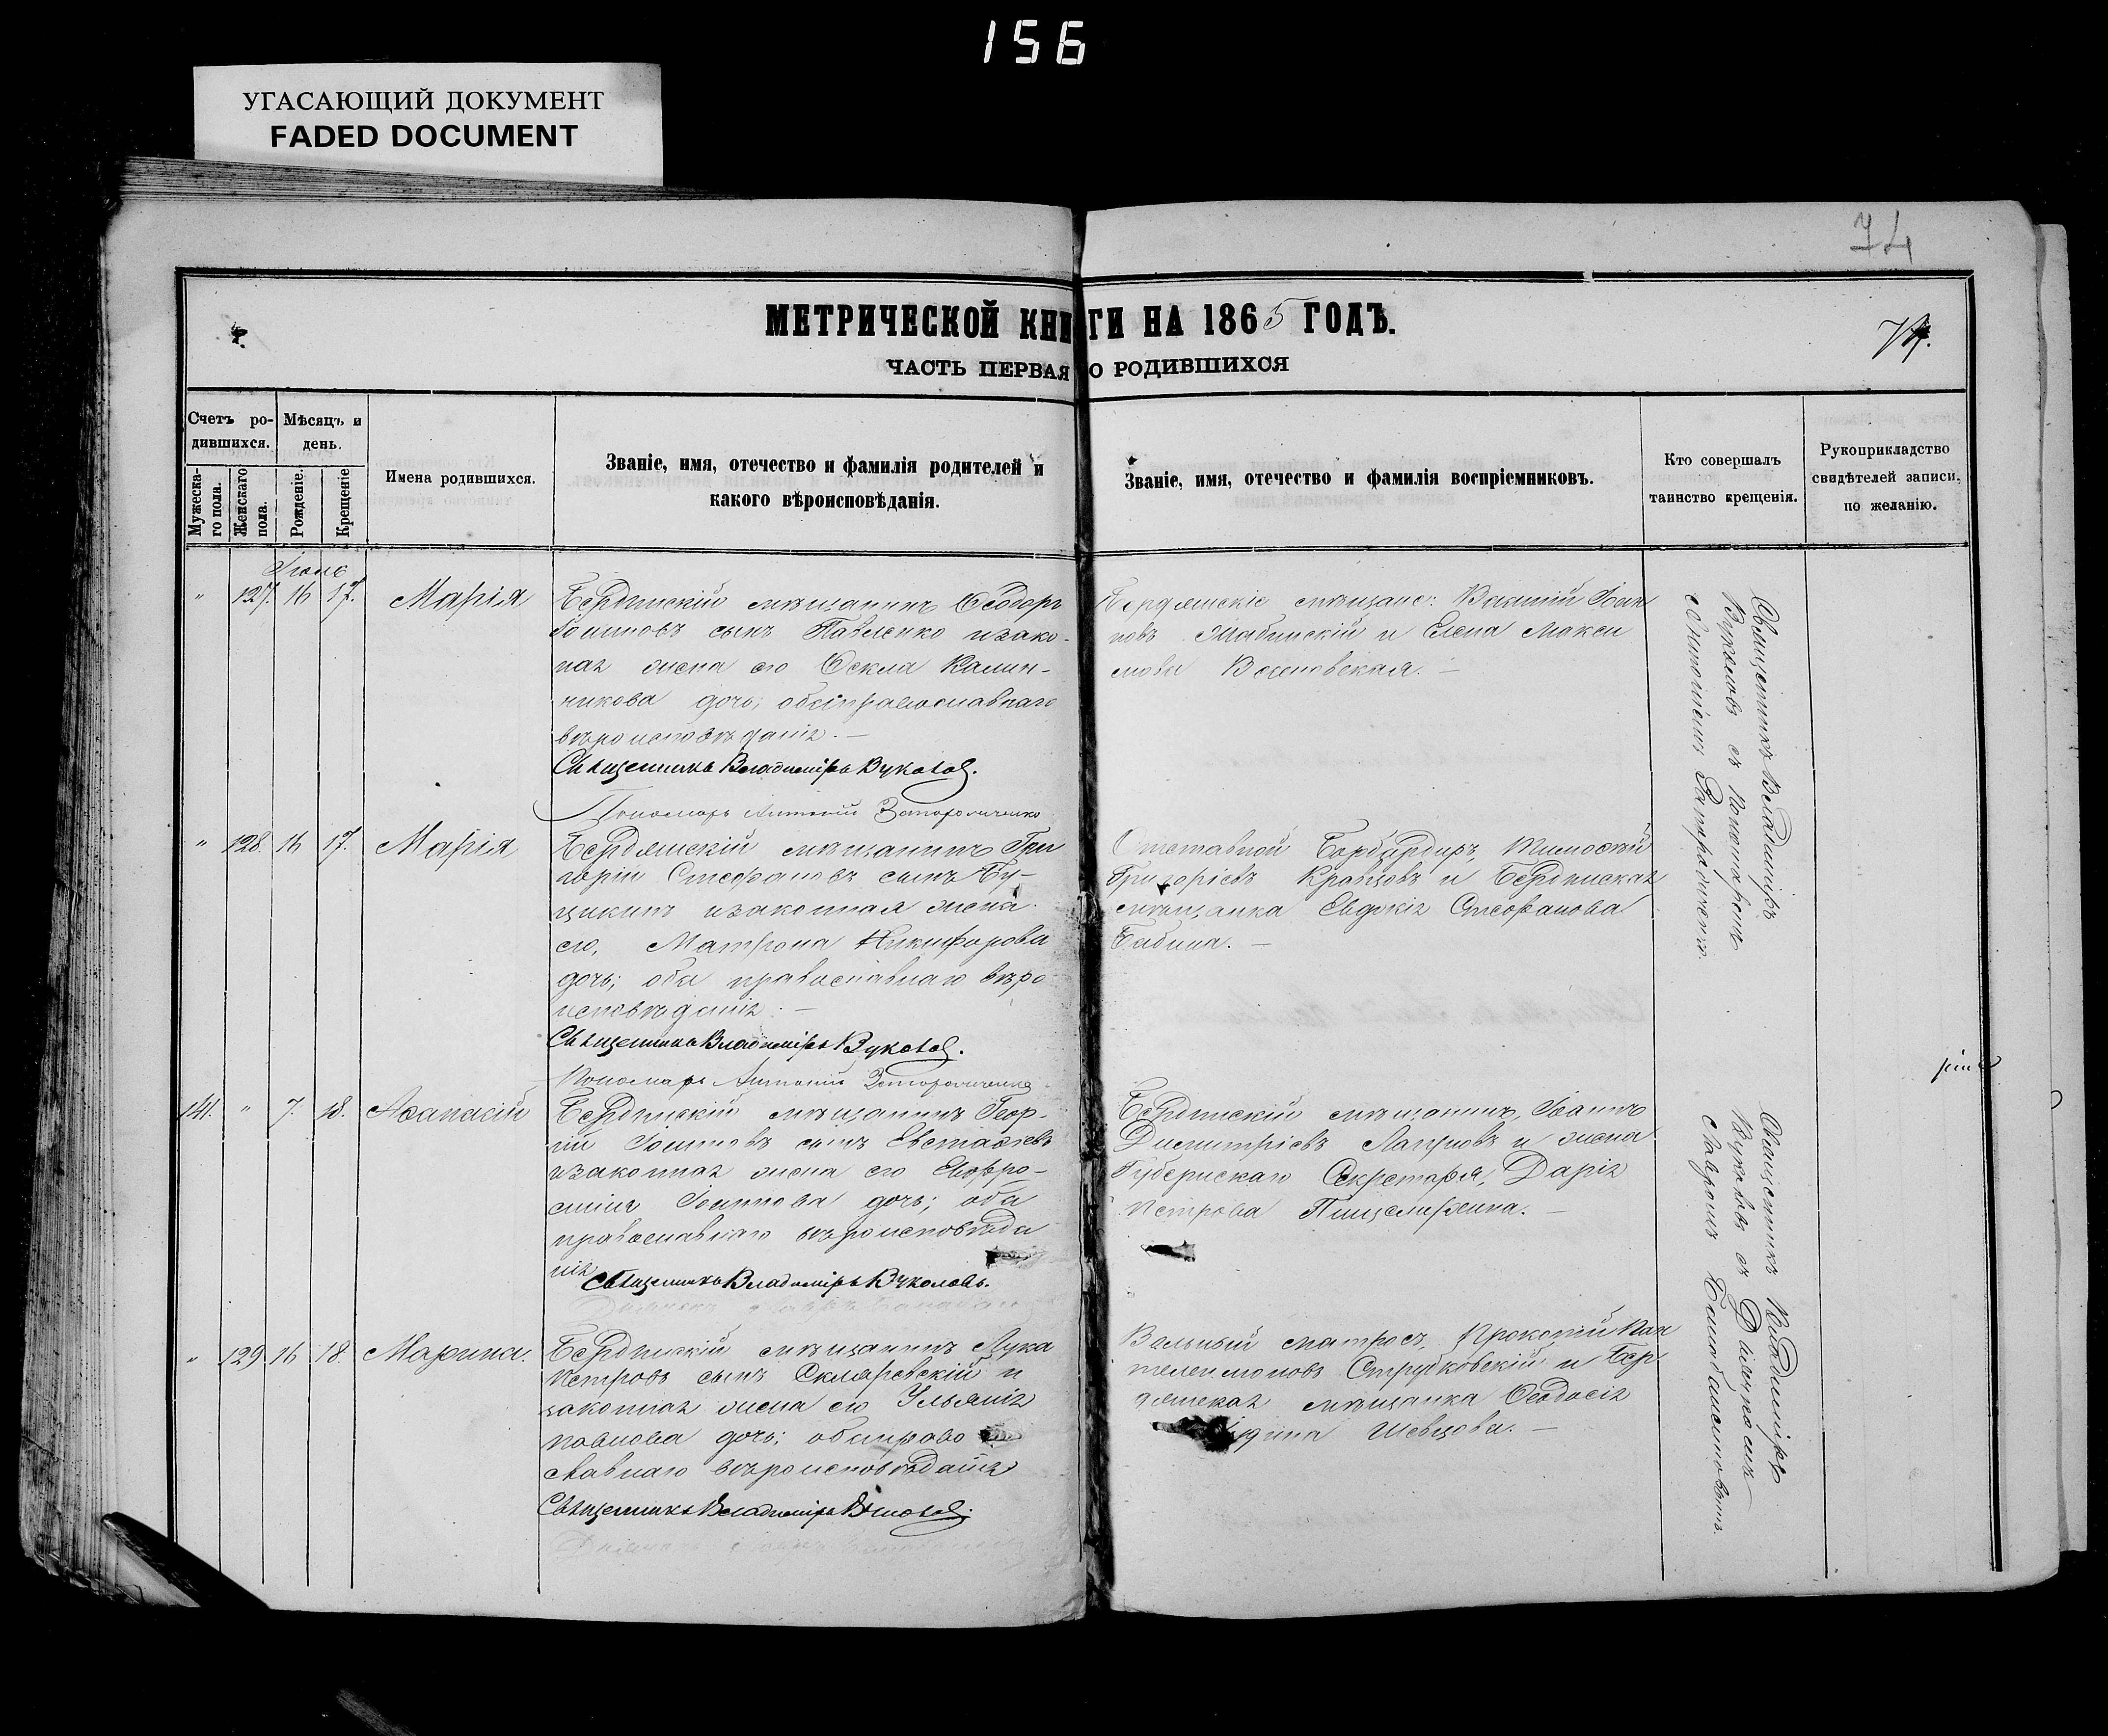 156
УГАСАЮЩИЙ ДОКУМЕНТ
FADED DOCUMENT
74
МЕТРИЧЕСКОЙ КНИГИ НА 1865 ГОДЪ.
ЧАСТЬ ПЕРВАЯ О РОДИВШИХСЯ
Счетъ ро-
дившихся.
Мѣсяцъ и
день.
Мужеска-
го пола.
Женскаго
пола.
Рожденіе.
Крещеніе
Имена родившихся.
Званіе, имя, отечество и фамилія родителей и
какого вѣроисповѣданія.
Званіе, имя, отечество и фамилія воспріемниковъ.
Кто совершалъ
таинство крещенія.
Рукоприкладство
свидѣтелей записи,
по желанію.
Іюнь
" 127. 16 17. Марія
Бердянскій мѣщанинъ Ѳеодоръ
Іоанновъ сынъ Павленко изако-
ная жена его Ѳекла Калин-
никова дочь; обаправославнаго
вѣроисповѣданія. —
Священникъ Владиміръ Вуколовъ.
Пономарь Антоній Запорожченко
Бердянскіе мѣщане: Іоан
новъ и Елена Макси
мова
Священникъ Владиміръ
Вуколовъ съ Пономаремъ
Антоніемъ Запорожченкомъ
" 128. 16 17. Марія
Бердянскій мѣщанинъ Гри
горій Стефановъ сынъ Бу-
цикинъ изаконная жена
его, Матрона Никифорова
дочь; оба православнаго вѣро
исповѣданія. —
Священникъ Владиміръ Вуколовъ.
Пономарь Антоній Запорожченко
Отставной Бомбардиръ, Тимоѳей
Григорієвъ Кравцовъ и Бердянская
мѣщанка Евдокія Стефанова
Бабина. —
141. " 7. 18. Аѳанасій
Бердянскій мѣщанинъ Геор-
гій Іоанновъ сынъ Евстафьевъ
изаконная жена его Евфро-
синія Іоаннова дочь; оба
православнаго вѣроисповѣда
нія
Священникъ Владиміръ Вуколовъ.
Бердянскій мѣщанинъ, Іоаннъ
Димитріевъ и жена
Губернскаго Секретаря, Дарія
Петрова —
Священникъ Владиміръ
Вуколовъ съ Дьячкомъ
" 129. 16 18. Марина.
Бердянскій мѣщанинъ Лука
Петровъ сынъ Скляревскій и
законная жена его Ульянія
Павлова дочь; обаправо
славнаго вѣроисповѣданія
Священникъ Владиміръ Вуколовъ.
Вольный матросъ, Прокопій Пан
телеимоновъ Струбковскій и Бер
дянская мѣщанка Ѳеодосія
Шевцова. —